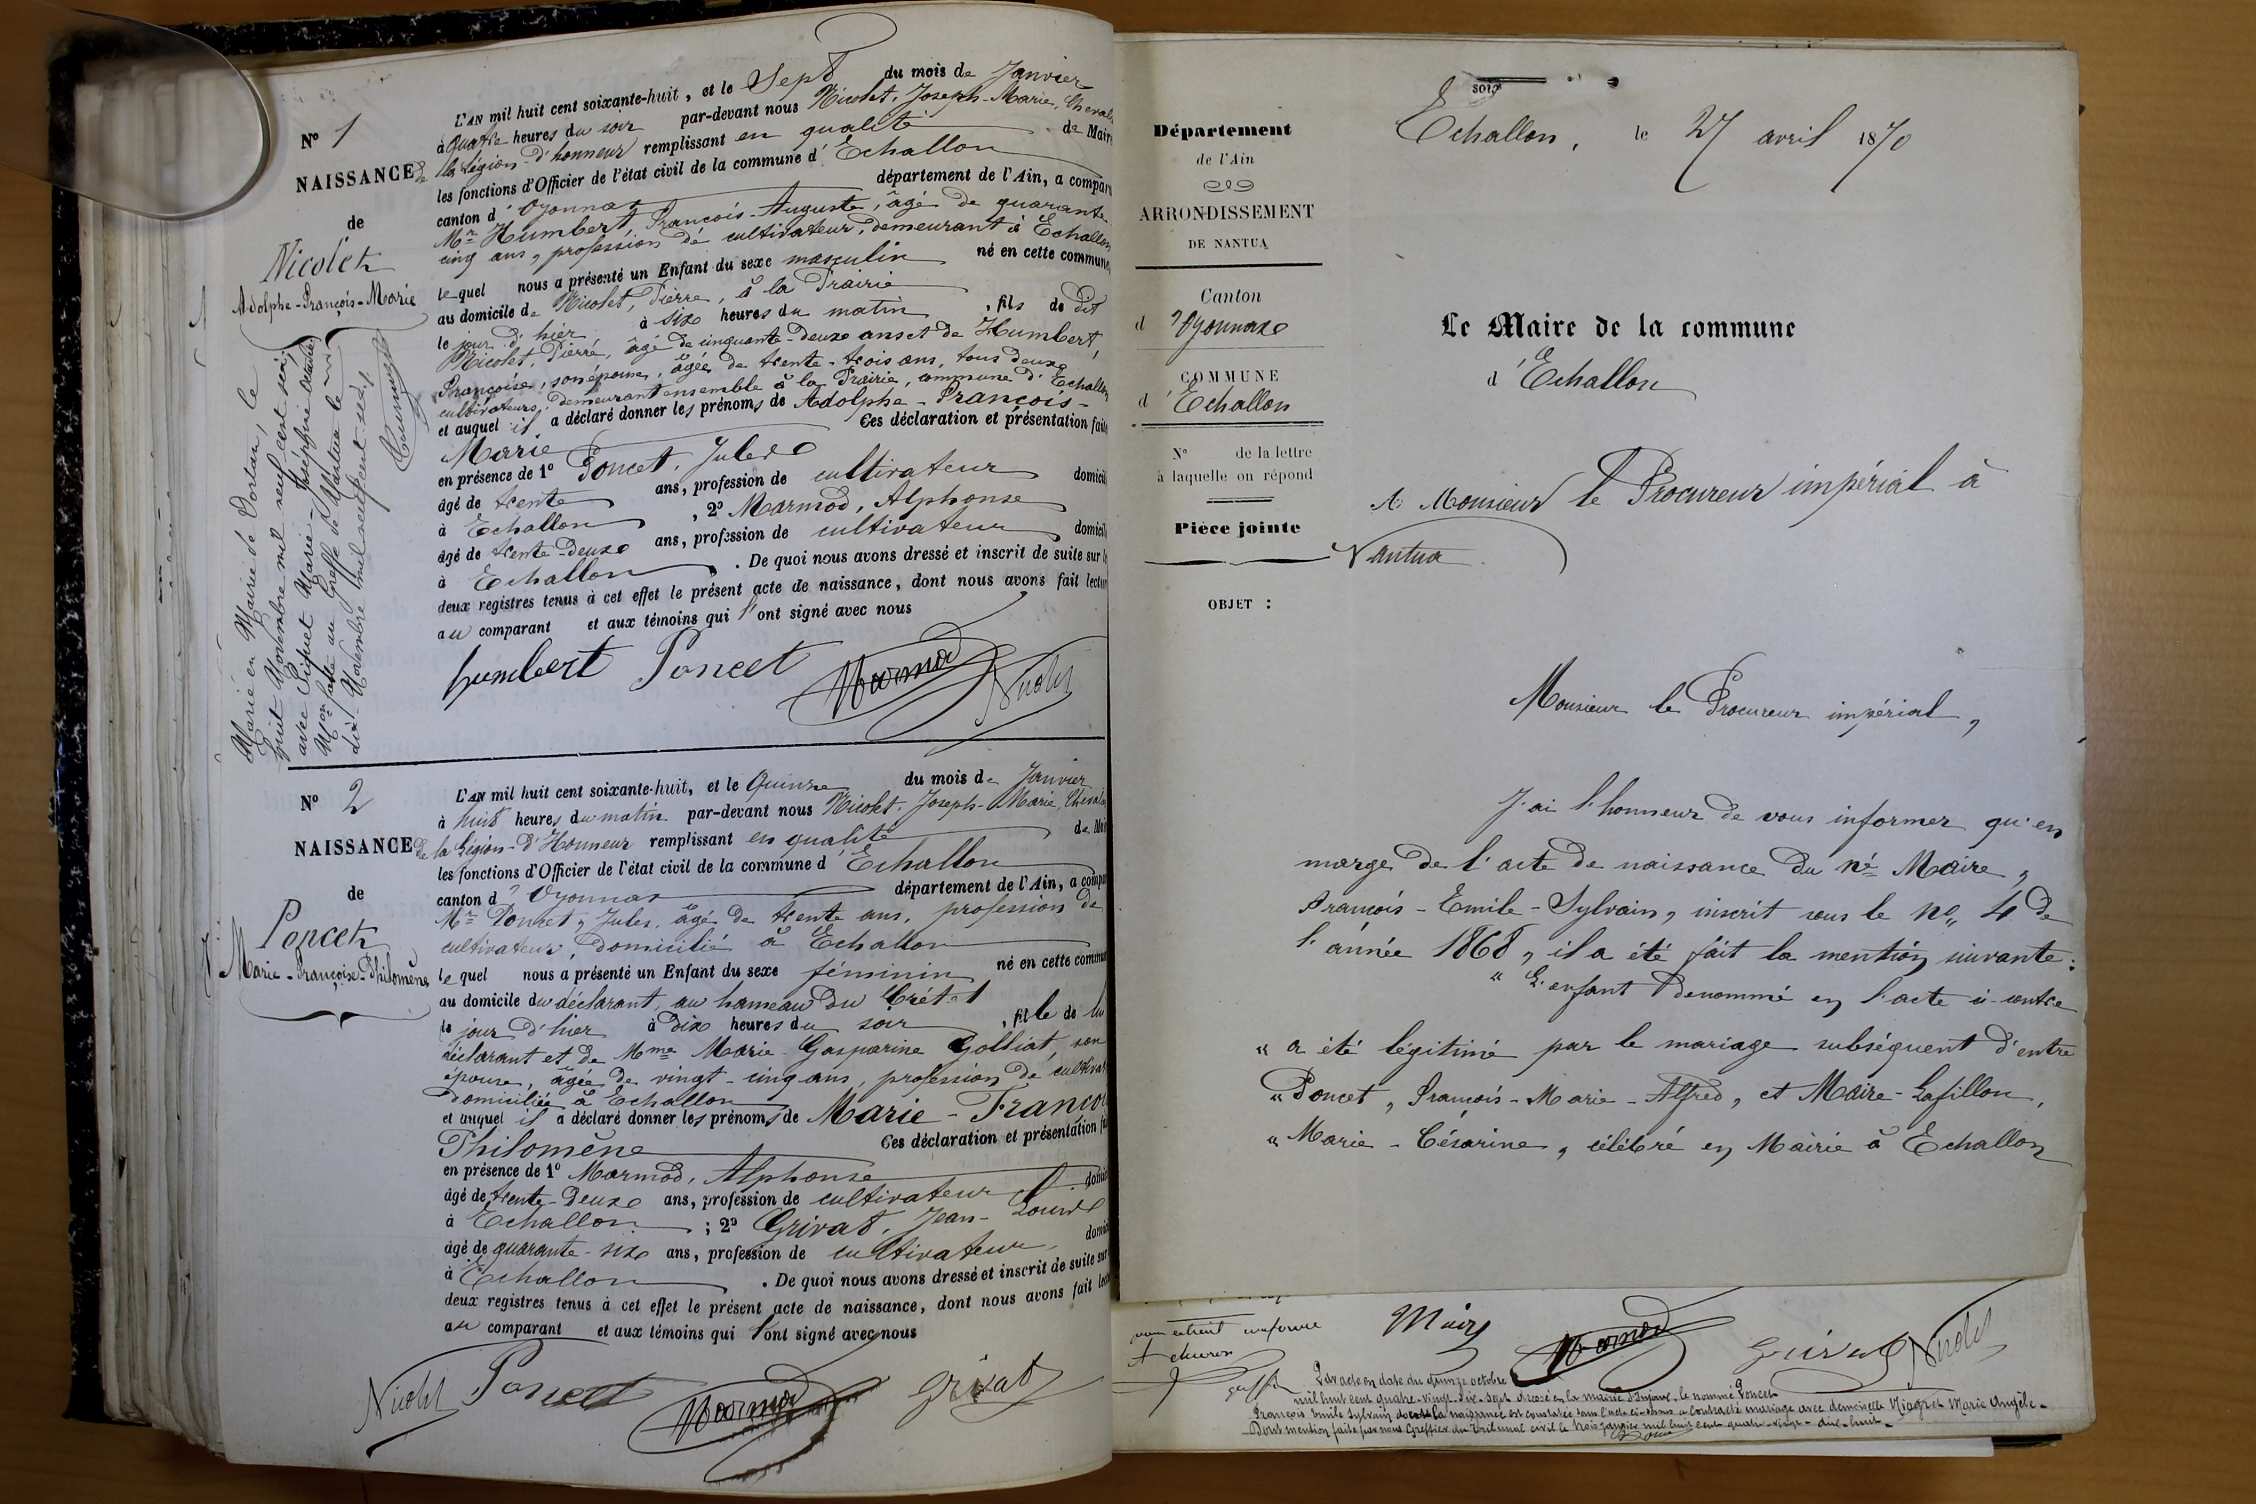 N° 1
NAISSANCE
de
Nicolet
Adolphe-François-Marie
Marié en Mairie de Dortan, le
huit Novembre mil neuf cent seize
avec Piquet Marie-Joséphine
Mon faite au Greffe de Nantua le
dix Novembre mil neuf cent seize.
L'AN mil huit cent soixante-huit, et le Sept du mois de Janvier
à Quatre heures du soir par-devant nous Nicolet, Joseph-Marie, Cheval
de la Légion-d'honneur remplissant en qualité de Maire
les fonctions d'Officier de l'état civil de la commune d'Echallon
canton d'Oyonnax département de l'Ain, a comparu
Mr Humbert, François-Auguste, âgé de quarante
cinq ans, profession de cultivateur, demeurant à Echallon
lequel nous a présenté un Enfant du sexe masculin né en cette commune,
au domicile de Nicolet, Pierre, à la Prairie
le jour d'hier à six heures du matin, fils de dit
Nicolet, Pierre, âgé de cinquante-deux ans et de Humbert,
Françoise, son épouse, âgée de trente-trois ans, tous deux
cultivateurs, demeurant ensemble à la Prairie, commune d'Echallon
et auquel il a déclaré donner les prénoms de Adolphe-François-
Marie Ces déclaration et présentation faite
en présence de 1° Poncet, Jules
âgé de trente ans, profession de cultivateur domicil
à Echallon, 2° Marmod, Alphonse
âgé de trente-deux ans, profession de cultivateur domicil
à Echallon. De quoi nous avons dressé et inscrit de suite sur le
deux registres tenus à cet effet le présent acte de naissance, dont nous avons fait lectur
au comparant et aux témoins qui l'ont signé avec nous
humbert Poncet Marmod Nicolet
N° 2
NAISSANCE
de
Poncet
Marie-Françoise-Philomène
L'AN mil huit cent soixante-huit, et le Quinze du mois de Janvier
à huit heures du matin par-devant nous Nicolet, Joseph-Marie, Cheval
de la Légion-d'Honneur remplissant en qualité de Mai
les fonctions d'Officier de l'état civil de la commune d'Echallon
canton d'Oyonnax département de l'Ain, a compar
Mr Poncet, Jules, âgé de trente ans, profession de
cultivateur, domicilié à Echallon
lequel nous a présenté un Enfant du sexe féminin né en cette commun
au domicile du déclarant, au hameau du Crétet
le jour d'hier à dix heures du soir, fille de lui
déclarant et de Mme Marie-Gasparine Golliat, son
épouse, âgée de vingt-cinq ans, profession de cultivat
domiciliée à Echallon
et auquel il a déclaré donner les prénoms de Marie-Françoi
Philomène Ces déclaration et présentation fa
en présence de 1° Marmod, Alphonse
âgé de trente-deux ans, profession de cultivateur domic
à Echallon; 2° Grivat, Jean-Louis
âgé de quarante-six ans, profession de cultivateur domic
à Echallon. De quoi nous avons dressé et inscrit de suite sur
deux registres tenus à cet effet le présent acte de naissance, dont nous avons fait lect
au comparant et aux témoins qui l'ont signé avec nous
Nicolet Poncet Marmod Grivat
Département
de l'Ain
ARRONDISSEMENT
DE NANTUA
Canton
d'Oyonnax
COMMUNE
d'Echallon
N° de la lettre
à laquelle on répond
Pièce jointe
OBJET :
soir
Echallon, le 27 avril 1870
Le Maire de la commune
d'Echallon
A Monsieur le Procureur impérial à
Nantua
Monsieur le Procureur impérial,
J'ai l'honneur de vous informer qu'en
marge de l'acte de naissance du né Maire,
François-Emile-Sylvain, inscrit sous le no 4 de
l'année 1868, il a été fait la mention suivante:
" L'enfant dénommé en l'acte ci-contre
" a été légitimé par le mariage subséquent d'entre
" Poncet, François-Marie-Alfred, et Maire-Lafillon,
" Marie-Césarine, célébré en Mairie à Echallon
conforme
Maire Marmod Grivat Nicolet
Par acte en date du quinze octobre
mil huit cent quatre-vingt-dix-sept dressé en la mairie d'Injoux le nommé Poncet
François Emile Sylvain dont la naissance est constatée dans l'acte ci-dessus a contracté mariage avec demoiselle Niogret Marie Angèle.
Dont mention faite par nous Greffier du Tribunal civil le trois janvier mil huit cent quatre-vingt-dix-huit.